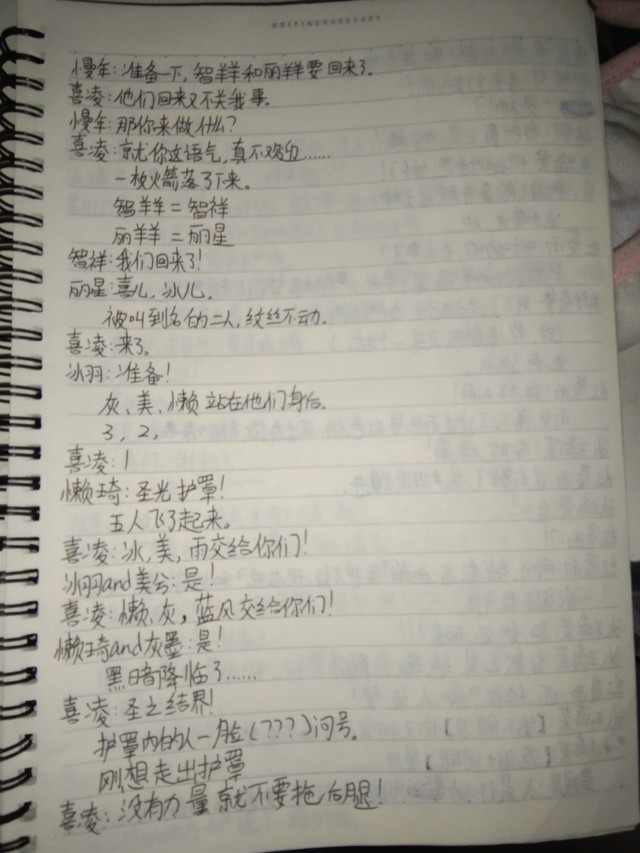 WRITINGOURSTORY
慢羊:准备一下,智羊羊和丽羊要回来了。
喜凌:他们回来又不关我事。
慢羊:那你来做什么?
喜凌:就你这语气,真不欢迎……
一枚火箭落了下来。
智羊羊=智祥
丽羊羊=丽星
智祥:我们回来了!
丽星:喜儿,冰儿,
被叫到名的二人,纹丝不动.
喜凌:来了。
冰羽:准备!
灰、美、懒站在他们身后。
3,2,
喜凌:1
懒琦:圣光护罩!
五人飞了起来。
喜凌:冰,美,雨交给你们!
冰羽and美兮:是!
喜凌:懒、灰,蓝风交给你们!
懒琦and灰墨:是!
黑暗降临了……
喜凌:圣之结界!
护罩内的人一脸(???)问号。
刚想走出护罩
喜凌:没有力量就不要拖后腿!